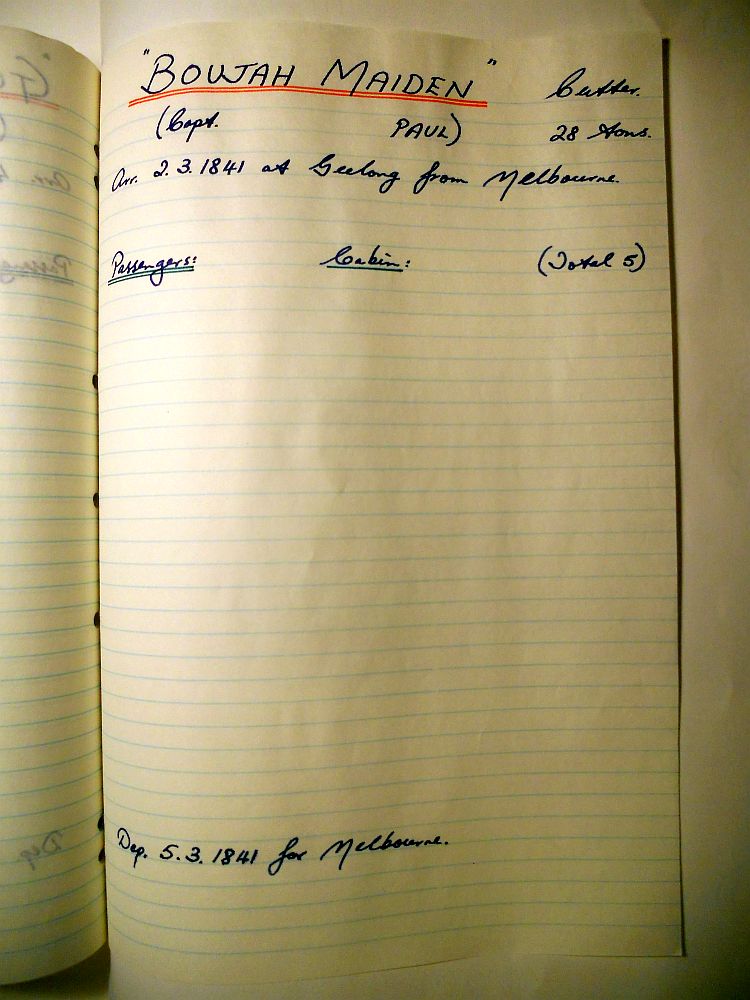 "BOUJAH MAIDEN" Cutter.
(Capt. PAUL) 28 tons.
Arr. 2.3.1841 at Geelong from Melbourne.
Passengers: Cabin: (Total 5)
Dep. 5.3.1841 for Melbourne.